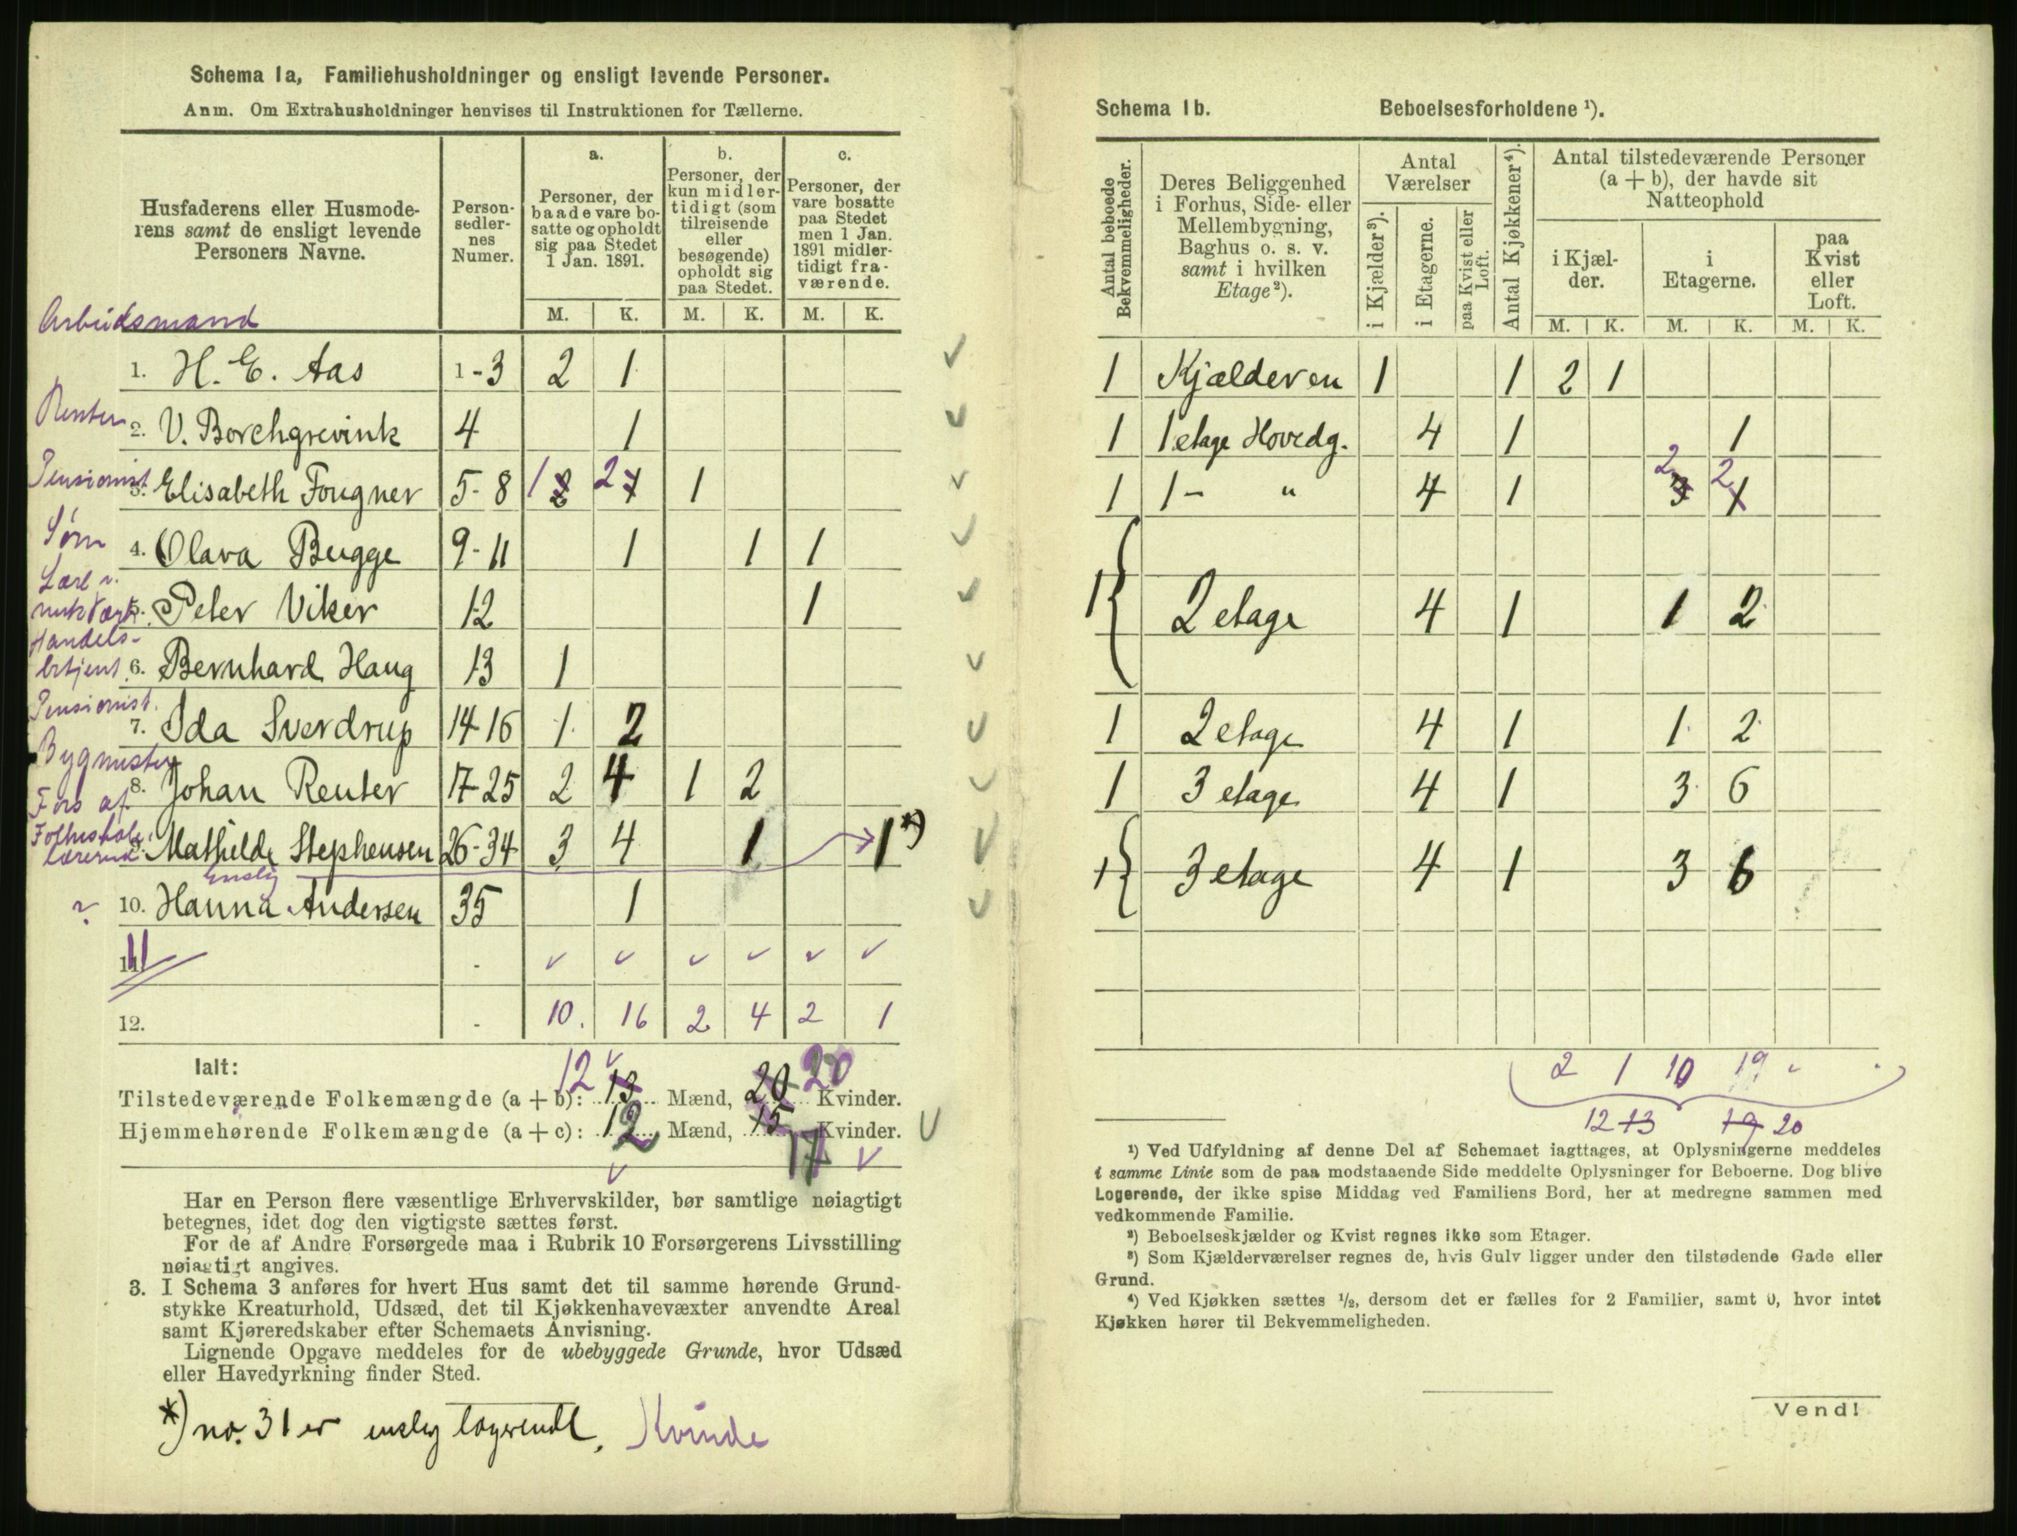 Schema 1a, Familiehusholdninger og ensligt levende Personer.
Anm. Om Extrahusholdninger henvises til Instruktionen for Tællerne.
Husfaderens eller Husmode-
rens samt de ensligt levende
Personers Navne.
Person-
sedler-
nes
Numer.
a.
Personer, der
baade vare bo-
satte og opholdt
sig paa Stedet
1 Jan. 1891.
b.
Personer, der
kun midler-
tidigt (som
tilreisende
eller
besøgende)
opholdt sig
paa Stedet.
c.
Personer, der
vare bosatte
paa Stedet
men 1 Jan.
1891 midler-
tidigt fra-
værende.
M. K. M. K. M. K.
Arbeidsmand
1. H. E. Aas 1-3 2 1
Renten
2. V. Borchgrevink 4 1
Pensionist
3. Elisabeth Fougner 5-8 1 2 2 1 1
Søm
4. Olava Bugge 9-11 1 1 1
Lærl v.
mek Værk
5. Peter Viker 12 1
Handels-
betjent
6. Bernhard Haug 13 1
Pensionist.
7. Ida Sverdrup 14-16 1 2
Bygmester
8. Johan Reuter 17-25 2 4 1 2
Fors af
Folkeskole
lærerinde
9. Mathilde Stephensen 26-34 3 4 1 1*)
Enslig
10. Hanna Andersen 35 1
11.
12. 10. 16 2 4 2 1
Ialt:
Tilstedeværende Folkemængde (a + b): 12 13 Mænd, 20 20 Kvinder.
Hjemmehørende Folkemængde (a + c): 12 Mænd, 15 17 Kvinder.
Har en Person flere væsentlige Erhvervskilder, bør samtlige nøiagtigt
betegnes, idet dog den vigtigste sættes først.
For de af Andre Forsørgede maa i Rubrik 10 Forsørgerens Livsstilling
nøiagtigt angives.
3. I Schema 3 anføres for hvert Hus samt det til samme hørende Grund-
stykke Kreaturhold, Udsæd, det til Kjøkkenhavevæxter anvendte Areal
samt Kjøreredskaber efter Schemaets Anvisning.
Lignende Opgave meddeles for de ubebyggede Grunde, hvor Udsæd
eller Havedyrkning finder Sted.
*) no. 31 er enslig logerende, Kvinde
Schema 1b. Beboelsesforholdene ¹).
Antal beboede
Bekvemmeligheder.
Deres Beliggenhed
i Forhus, Side- eller
Mellembygning,
Baghus o. s. v.
samt i hvilken
Etage²).
Antal
Værelser
i Kjælder³).
i Etagerne.
paa Kvist eller
Loft.
Antal Kjøkkener⁴).
Antal tilstedeværende Personer
(a + b), der havde sit
Natteophold
i Kjæl-
der.
i
Etagerne.
paa
Kvist
eller
Loft.
M. K. M. K. M. K.
1 Kjælderen 1 1 2 1
1 1 etage Hovedg. 4 1 1
1 1 - " 4 1 2 3 2 1
1 2 etage 4 1 1 2
1 2 etage 4 1 1 2
1 3 etage 4 1 3 6
1 3 etage 4 1 3 6
2 1 10 19
12 13 19 20
¹) Ved Udfyldning af denne Del af Schemaet iagttages, at Oplysningerne meddeles
i samme Linie som de paa modstaaende Side meddelte Oplysninger for Beboerne. Dog blive
Logerende, der ikke spise Middag ved Familiens Bord, her at medregne sammen med
vedkommende Familie.
²) Beboelseskjælder og Kvist regnes ikke som Etager.
³) Som Kjælderværelser regnes de, hvis Gulv ligger under den tilstødende Gade eller
Grund.
⁴) Ved Kjøkken sættes ½, dersom det er fælles for 2 Familier, samt 0, hvor intet
Kjøkken hører til Bekvemmeligheden.
Vend!